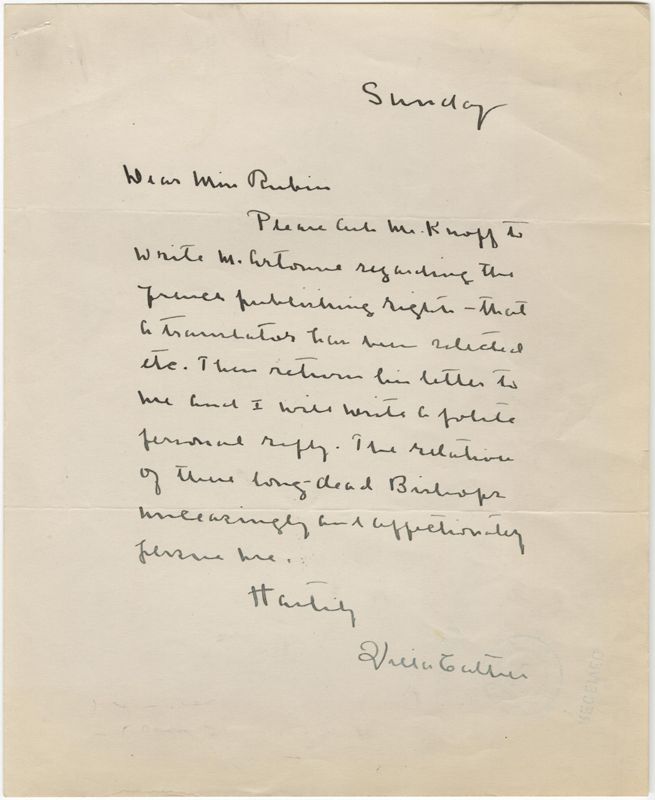 Sunday
Dear Miss Rubin
Please ask Mr. Knopf to
write M. Artonne regarding the
French publishing rights - that
a translator has been selected
etc. Then return his letter to
me and I will write a polite
personal reply. The relatives
of these long-dead Bishops
unceasingly and affectionately
pursue me.
Hastily
Willa Cather
RECEIVED